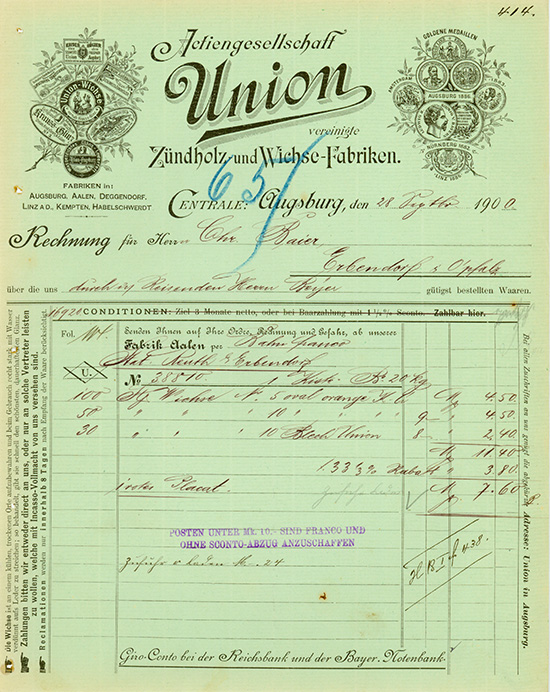 414.
Actiengesellschaft
Union
vereinigte
Zündholz- und Wichse-Fabriken.
GOLDENE MEDAILLEN
AUGSBURG 1886.
NÜRNBERG 1882.
LINZ 1886.
Union-Wichse
FABRIKEN in:
AUGSBURG, AALEN, DEGGENDORF,
LINZ A.D., KEMPTEN, HABELSCHWERDT
657
CENTRALE: Augsburg, den 28 Septbr 1900
Rechnung für Herrn Chr. Baier
Erbendorf Opfalz
über die uns durch Reisenden Herrn gütigst bestellten Waaren.
16920 CONDITIONEN: Ziel 3 Monate netto, oder bei Baarzahlung mit 1½% Sconto. Zahlbar hier.
Fol. Senden Ihnen auf Ihre Ordre, Rechnung und Gefahr, ab unserer
Fabrik Aalen per Bahn franco
Stat. Reuth Erbendorf
U. No 38810 1 Kiste Bo 20 kg
100 Wichse No 5 oval orange M 4.50
50 " " " 10 " 9 " 4.50
30 " " " 10 Blech Union 8 " 2.40
M 11.40
33⅓% Rabatt " 3.80
Placat. M 7.60
POSTEN UNTER MK. 10.- SIND FRANCO UND
OHNE SCONTO-ABZUG ANZUSCHAFFEN
24
438.
Giro-Conto bei der Reichsbank und der Bayer. Notenbank.
Die Wichse ist an einem kühlen, trockenen Orte aufzubewahren und beim Gebrauch recht stark mit Wasser
verdünnt aufs Leder zu streichen; so behandelt, gibt sie schnell den schönsten, dauerhaftesten Glanz.
Zahlungen bitten wir entweder direct an uns, oder nur an solche Vertreter leisten
zu wollen, welche mit Incasso-Vollmacht von uns versehen sind.
Reclamationen werden nur innerhalb 8 Tagen nach Empfang der Waare berücksichtigt.
Bei allen Zuschriften an uns genügt die abgekürzte Adresse: Union in Augsburg.